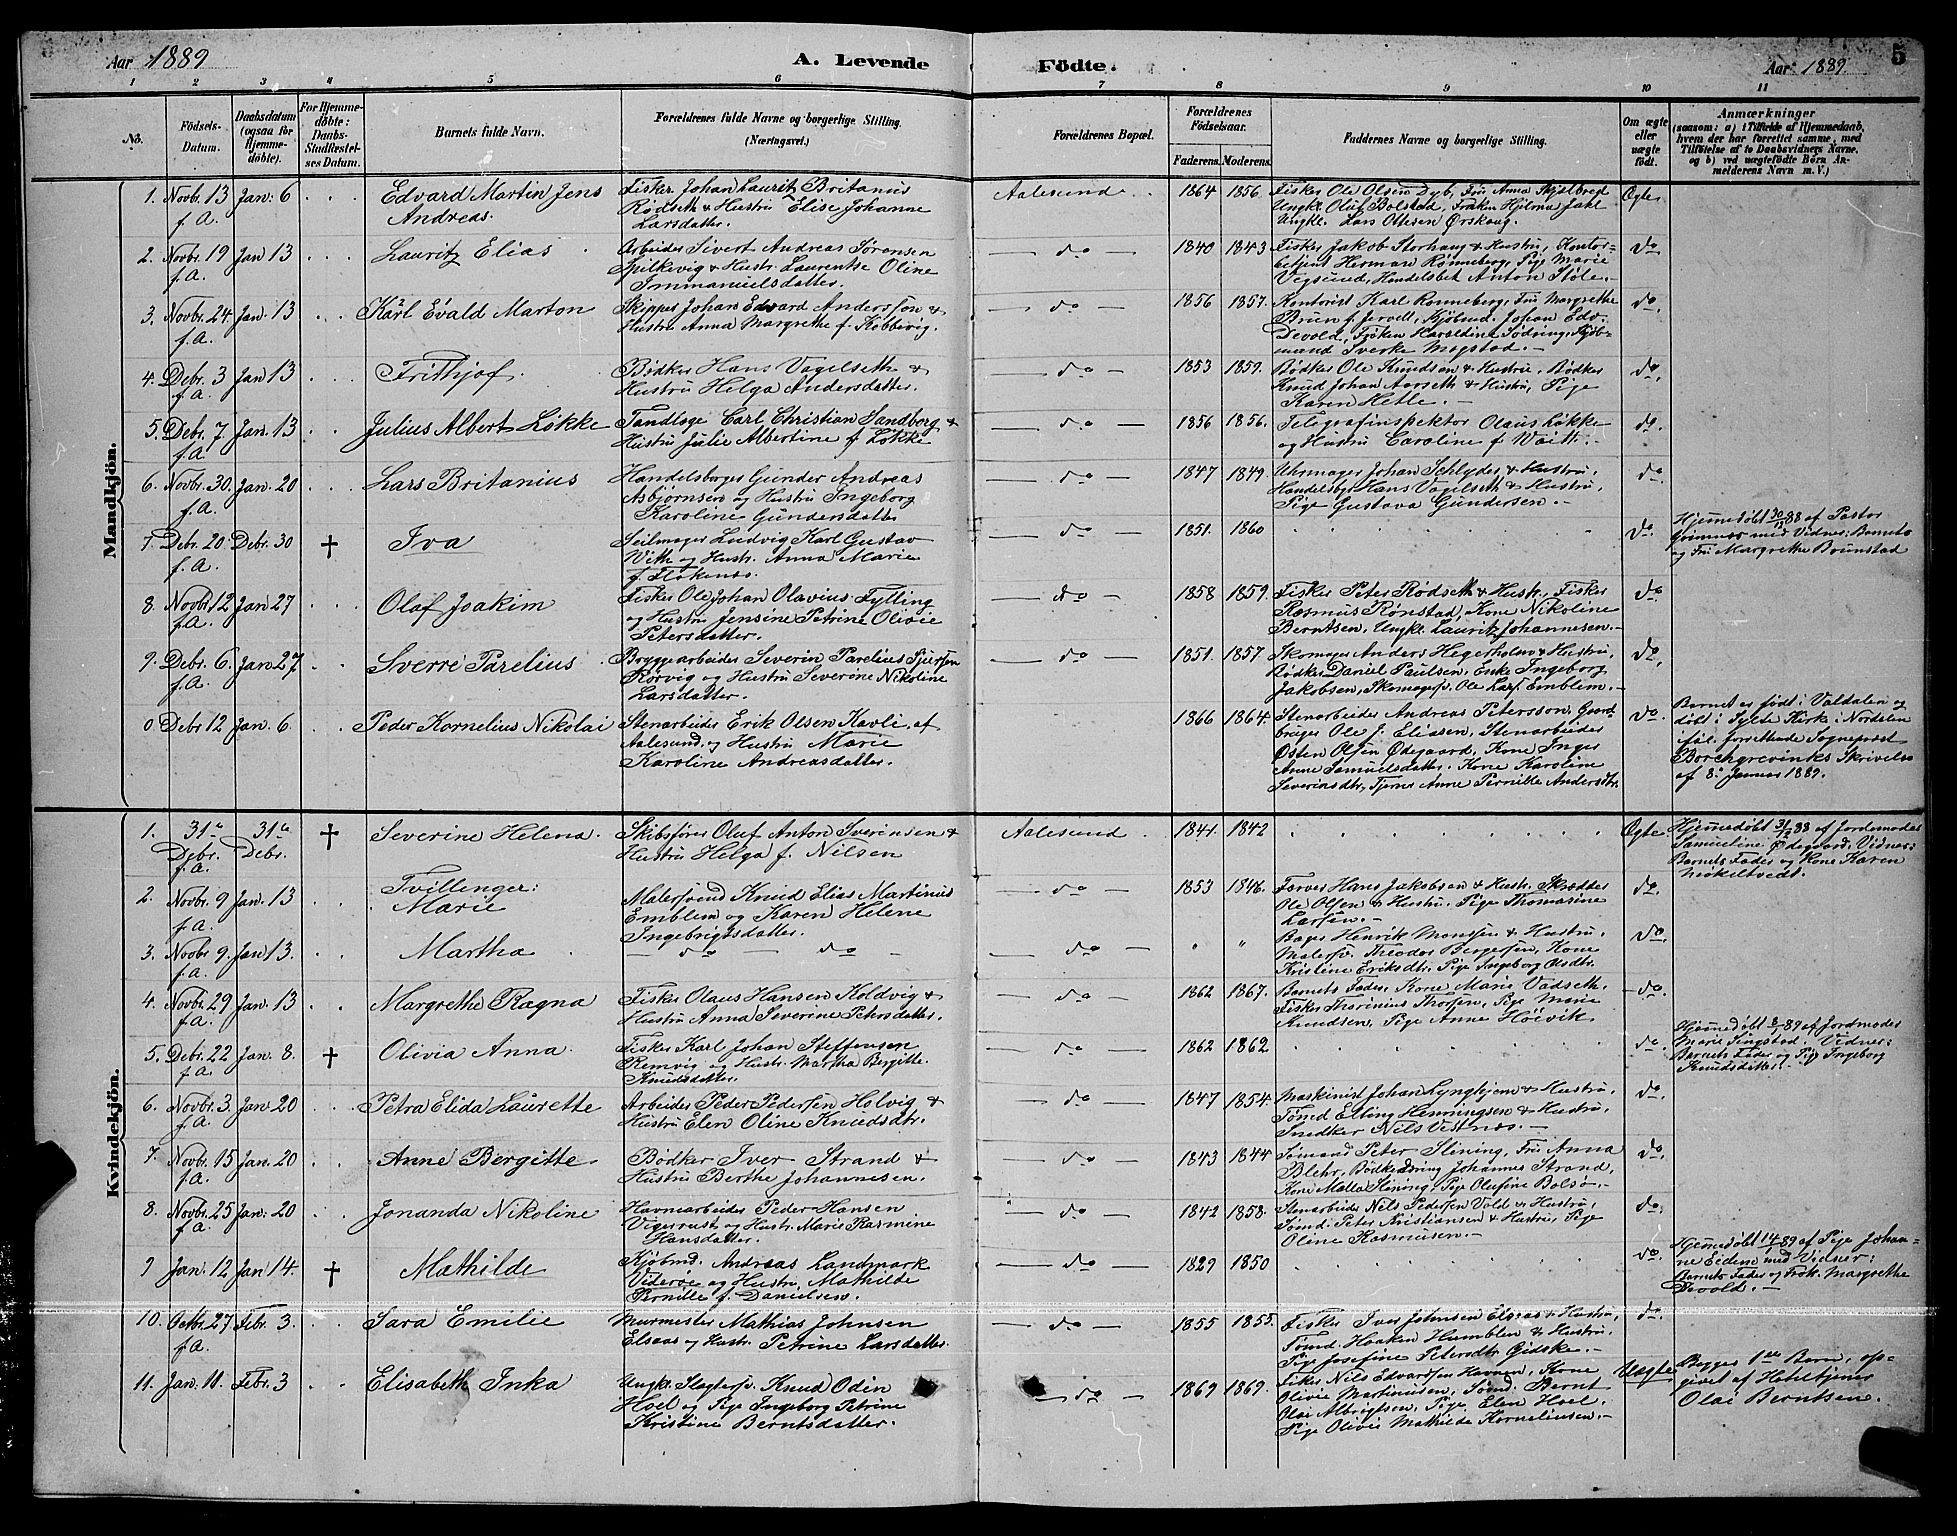 Aar 1889
A. Levende Fødte.
Aar 1889.
5
1 2 3 4 5 6 7 8 9 10 11
No.
Fødsels-Datum.
Daabsdatum (ogsaa for Hjemme-døbte).
For Hjemme-døbte: Daabs-Stadfæstel-ses Datum.
Barnets fulde Navn.
Forældrenes fulde Navne og borgerlige Stilling. (Næringsvei.)
Forældrenes Bopæl.
Forældrenes Fødselsaar.
Faderens. Moderens.
Faddernes Navne og borgerlige Stilling.
Om ægte eller uægte født.
Anmærkninger
(saasom: a) i Tilfælde af Hjemmedaab, hvem der har forrettet samme, med Tilføielse af to Daabsvidners Navne, og b) ved uægtefødte Børn Anmelderens Navn m. V.)
Mandkjøn.
1. Novbr. 13 f.A. Jan. 6 Edvard Martin Jens Andreas. Fisker Johan Lauritz Britanius Rødseth & Hustru Elise Johanne Larsdatter. Aalesund. 1864 1856 Fisker Ole Olsen Dyb, Fru Anna Ungk. Oluf Bolstad, Frøken Ungk. Lars Ottesen Ørskoug. Ægte
2. Novbr. 19 f.A. Jan 13 Lauritz Elias Arbeider Sivert Andreas Sørensen Spilkevig & Hustr. Laurentse Oline Immanuelsdatter. do 1840 1843 Fisker Jakob Storhaug & Hustru, Kontor=betjent Herman Rønneberg, Pige Marie Vegsund, Handelsbet Anton Støle. do
3. Novbr. 24 f.A. Jan. 13 Karl Evald Marton Skipper Johan Edvard Anderssøn & Hustru Anna Margrethe f. Kobbevig. do 1856 1857. Kontorist Karl Rønneberg, Fru Margrethe Brun f. Jervell, Kjøbmd. Johan Edv. Devold, Frøken Haraldine Sverke do
4. Debr. 3 f.A. Jan 13 Frithjof. Bødker Hans Vagelseth & Hustru Helga Andersdatter. do 1853 1859. Bødker Ole Knudsen & Hustru, Bødker Knud Johan Aarseth & Hustru, Pige Karen Hetle. do
5. Debr. 7 f.A. Jan. 13 Julius Albert Løkke Tandlæge Carl Christian Sandborg & Hustru Julie Albertine f. Løkke do 1856 1856. Telegrafinspektør Olaus Løkke og Hustru Caroline f. Waitt. do
6. Novbr. 30. f.A. Jan. 20 Lars Britanius Handelsborger Gunder Andreas Asbjørnsen og Hustru Ingeborg Karoline Gundersdatter do 1847 1849. Uhrmager Johan Schlyder & Hustru, Handelsbg. Hans Vagelseth & Hustru, Pige Gustava Gundersen. do
7. Debr. 20. f.A. Debr. 30 † Iva Seilmager Ludvig Karl Gustav With og Hustr. Anna Marie f. Flokenes. do 1851. 1860 do Hjemmedøbt 30/12 88 af Pastor Grimnes med Vidner: Barnets og Fru Margrethe Brunstad
8 Novbr. 12 f.A. Jan 27 Olaf Joakim Fisker Ole Johan Olavius Fylling og Hustru Jensine Petrine Olivie Petersdatter. do 1858 1859. Fisker Peter Rødseth & Hustr., Fisker Rasmus Rønstad, Kone Nikoline Berntsen, Ungk. Lauritz Johannesen. do
9. Debr. 6. f.A. Jan 27 Sverre Parelius Bryggearbeider Severin Parelius Rørvig og Hustru Severine Nikoline Larsdatter. do 1851. 1857 Skomager Anders Hegerholm & Hustru, Bødker Daniel Paulsen, Enke Ingeborg Jakobsen, Skomagersv. Ole Lars. Emblem. do
0 Debr 12 Jan. 6. Peder Kornelius Nikolai Stenarbeider Erik Olsen Kavli af Aalesund og Hustru Marie Karoline Andreasdatter. 1866 1864. Stenarbeider Andreas Petersson, Gaard-bruger Ole J. Eliasen, Stenarbeider Østen Olsen Ødegaard, Kone Inger Anne Samuelsdatter. Kone Karoline Severinsdtr, Tjener Anne Pernille Andersdtr. do Barnet er født i Valdalen og døbt i Sylte Kirke i Nordalen føl. Sognepræst Borchgrevinks Skrivelse af 8. Januar 1889.
Kvindekjøn.
1. 31te Debr. f.A. 31te Debr. † Severine Helena. Skibsfører Oluf Anton Iversensen & Hustru Helga f. Nilsen Aalesund. 1841. 1842 Ægte Hjemmedøbt 31/12 88 af Jordemoder Samueline Ødegaard. Vidner: Barnets Fader og Kone Karen
2. Novbr. 9 f.A. Jan. 13 Tvillinger: Marie Malersvend Knud Elias Martinus Emblem og Karen Helene Ingebrigtsdatter. do 1853 1846. Farver Hans Jakobsen & Hustr. Skrædder Ole Olsen & Hustru. Pige Thomasine Larsen. do
3. Novbr. 9. f.A. Jan. 13. Martha do do do " " Bager Henrik Monssen & Hustru, Malersv. Theodor Bergersen, Kone Kristine Eriksdtr. Pige Ingeborg Olsdtr. do.
4. Novbr. 29 f.A. Jan. 13 Margrethe Ragna Fisker Olaus Hansen Koldvig & Hustru Anna Severine Petersdatter. do 1862 1867. Barnets Fader, Kone Marie Vadseth, Fisker Thorinius Thorsen, Pige Marie Knudsen, Pige Anne Høivik do.
5. Debr. 22 f.A. Jan. 8. † Olivia Anna. Fisker Karl Johan Steffensen Remvig og Hustr. Martha Bergitte Knudsdatter. do 1862 1862 do Hjemmedøbt 8/1 89 af Jordmoder Marie Vidner: Barnets Fader og Pige Ingeborg Knudsdatter.
6. Novbr. 3. f.A. Jan. 20 Petra Elida Laurette Arbeider Peder Pedersen Holvig & Hustru Elen Oline Knudsdtr. do 1847 1854. Maskinist Johan Lynghjem & Hustru, Tømd. Elling Henningsen & Hustru, Snedker Nils Vestnæs. do
7. Novbr. 15 f.A. Jan. 20 Anne Bergitte Bødker Iver Strand & Hustru Berthe Johannesen. do 1843 1844 Tømand Peter Slining, Fru Anna Blehr, Johannes Strand, Kone Malla Slining, Pige Olufine Bolsø. do.
8. Novbr. 25 f.A. Jan. 20 Jonanda Nikoline Havnearbeider Peder Hansen Vigerust og Hustr. Maris Rasmine Hansdatter. do 1842 1858. Stenarbeider Nils Pedersen Vold & Hustru, Tømd. Peter Kristiansen & Hustru, Pige Oline Rasmusen. do
9 Jan. 12 Jan 14. † Mathilde Kjøbmd. Andreas Landmark Viderøe og Hustru Mathilde Pernille f. Danielsen. do 1829 1850 do. Hjemmedøbt 14/1 89 af Pige Johan-ne Eidem med Vidner: Barnets Fader og Frøk. Margrethe Devold.
10. Octbr. 27 f.A. Febr. 3. Sara Emilie Murmester Mathias Johnsen Elsaas og Hustr. Petrine Larsdatter. do 1855 1855. Fisker Iver Johnsen Elsaas & Hustru, Tømd. Haaken Humblen & Hustru, Pige Josefine Petersdtr Gidske. do
11. Jan. 11. Febr. 3 Elisabeth Inka Ungk. Slagtersv. Knud Odin Hoel og Pige Ingeborg Petrine Kristine Berntsdatter. do 1869 1869. Fisker Nils Edvardsen Havnen, Kone Olivie Martinusen, Tømd. Bernt Olai Albrigtsen, Pige Elen Hoel. Pige Olivie Mathilde Korneliusen. Uægte Begges 1ste Barn, op-givet af Olai Berntsen.